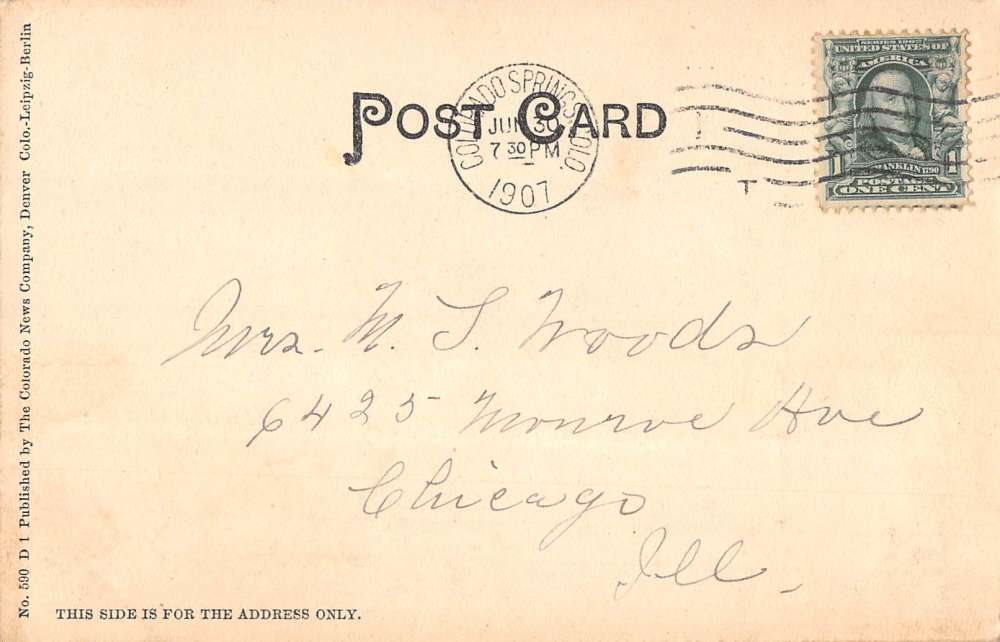 POST CARD
COLORADO SPRINGS, COLO.
JUN 30
7 30 PM
1907
T
SERIES 1902
UNITED STATES OF
AMERICA
1 FRANKLIN 1790 1
POSTAGE
ONE CENT
Mrs. M. S. Woods
6425 Monroe Ave
Chicago
Ill.
THIS SIDE IS FOR THE ADDRESS ONLY.
No. 590 D 1 Published by The Colorado News Company, Denver Colo.-Leipzig-Berlin